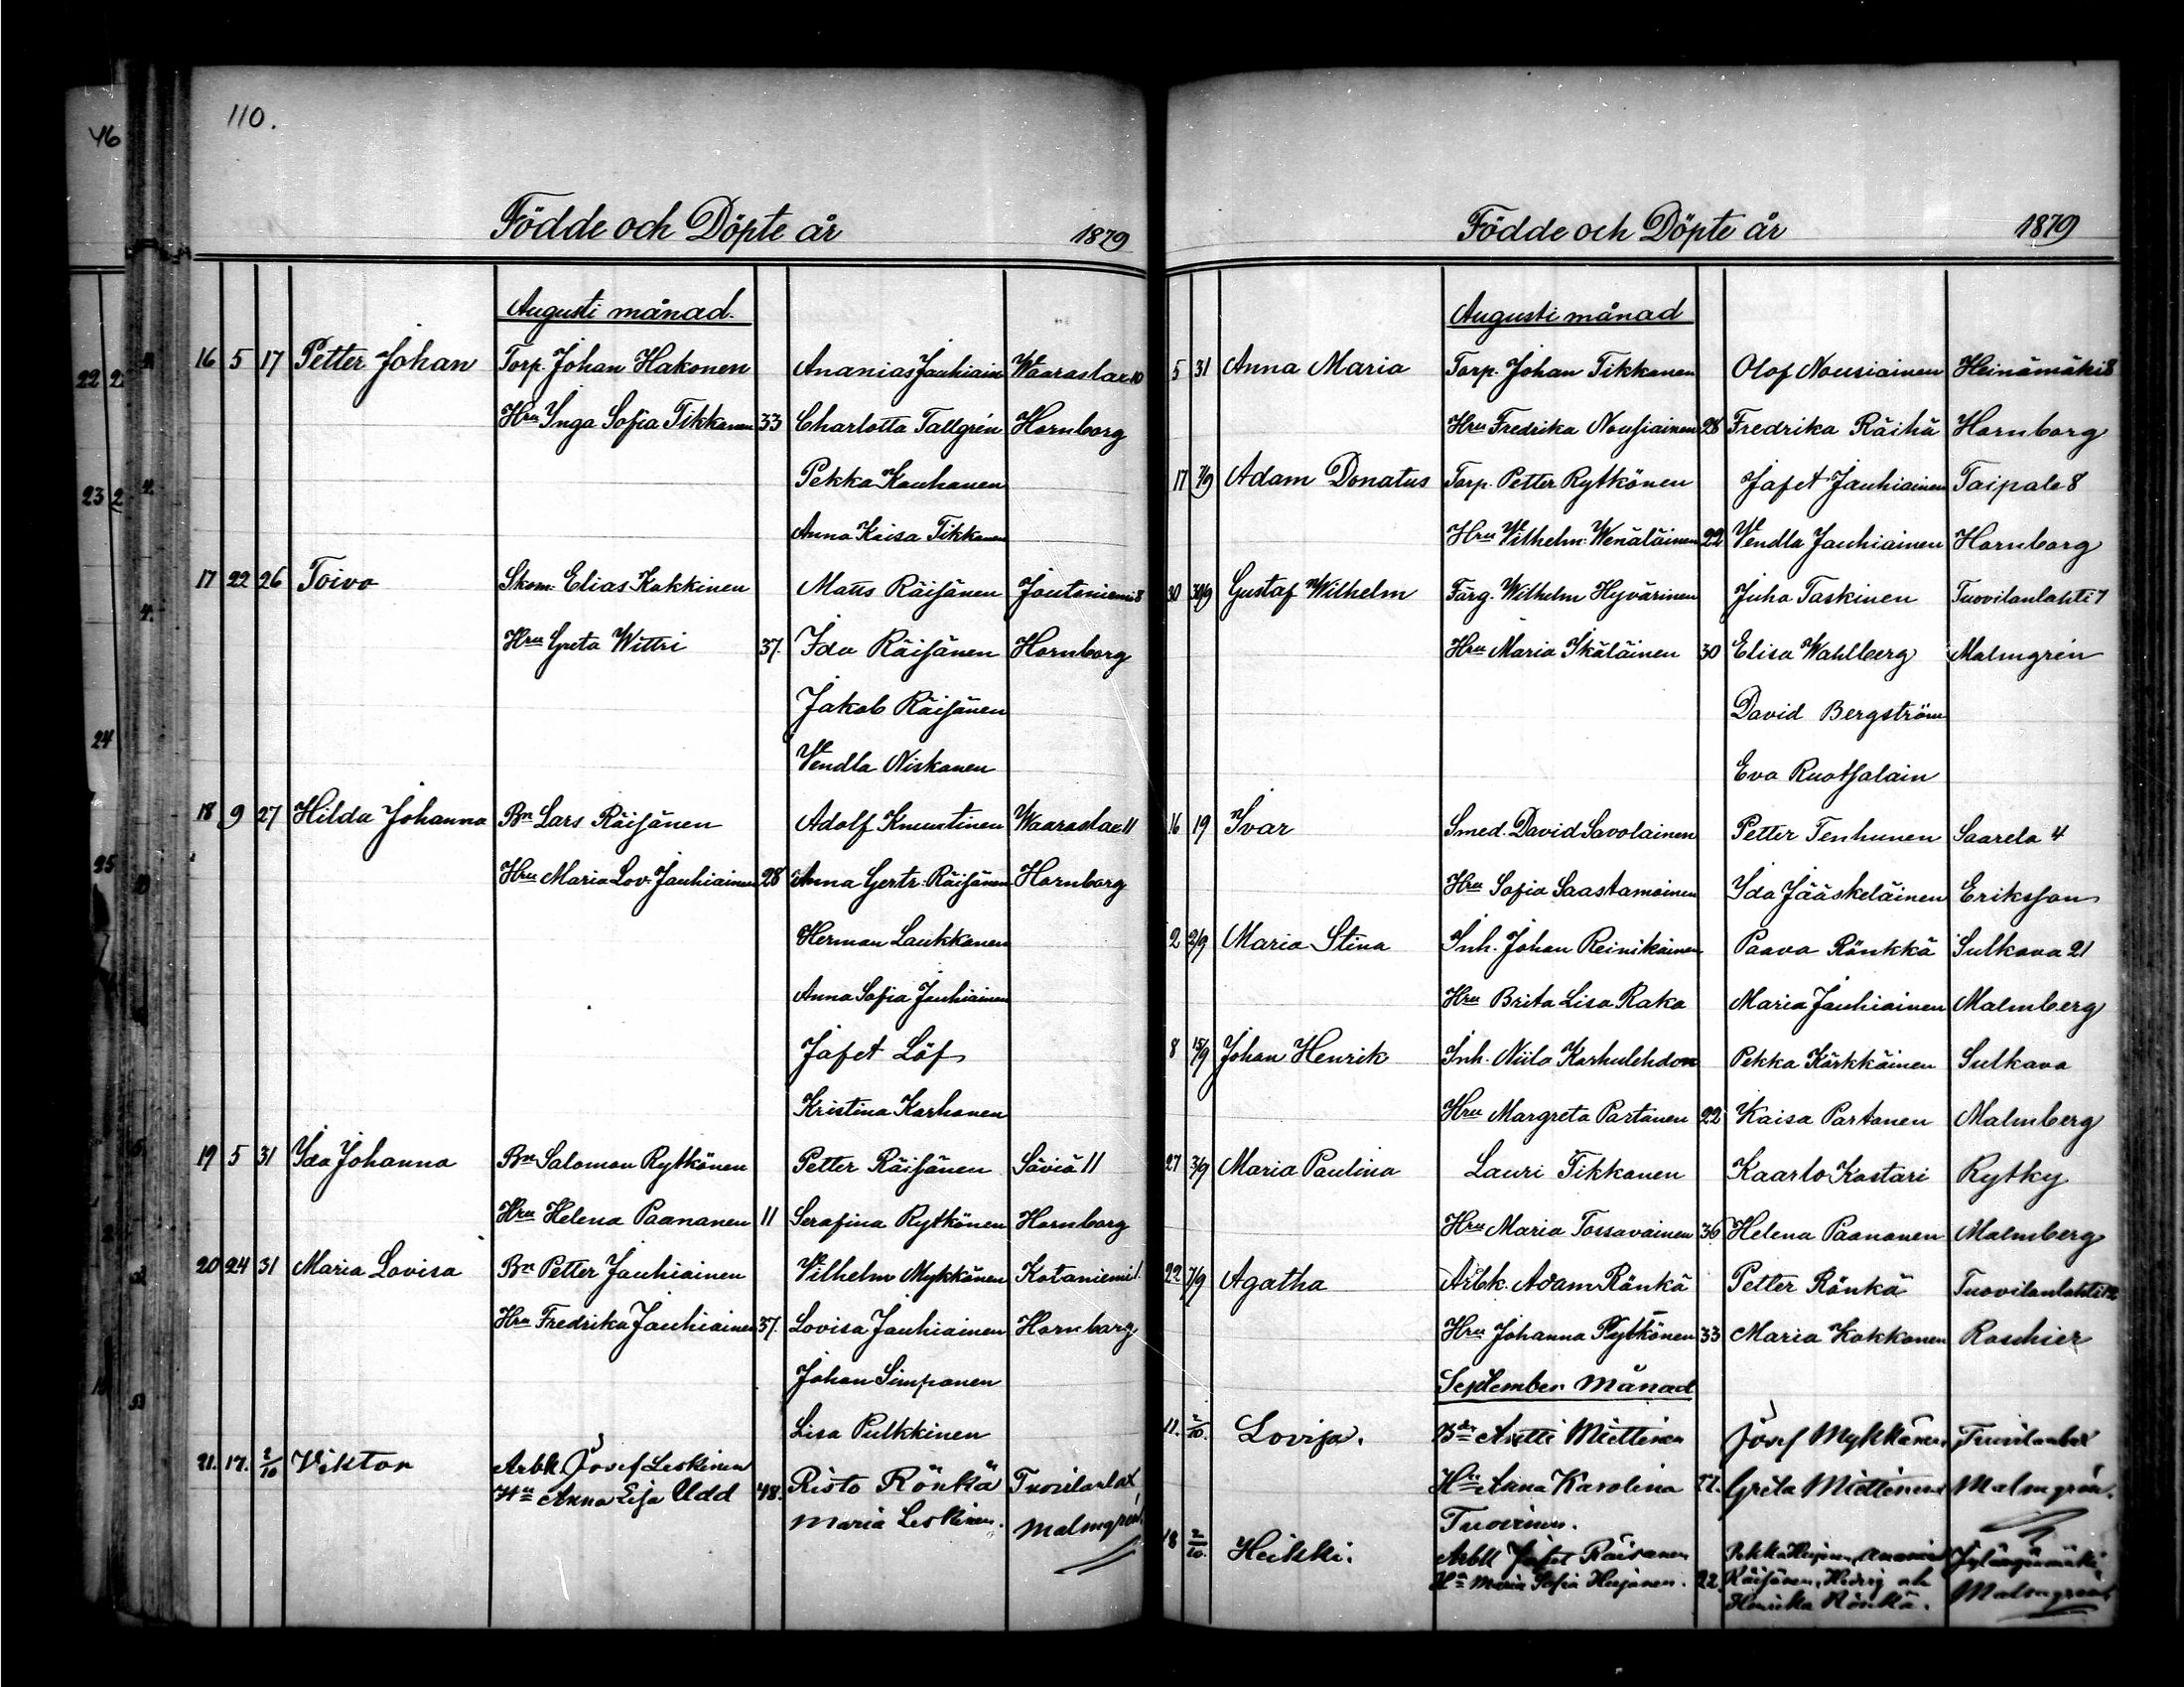 46
110.
Födde och Döpte år 1879
Augusti månad.
16 5 17 Petter Johan Torp. Johan Hakonen Ananias Jauhiain Waaraslax 10
Hru Inga Sofia Tikkanen 33 Charlotta Tallgrén Hornborg
Pekka Kauhanen
Anna Kaisa Tikkanen
17 22 26 Toivo Skom. Elias Kokkinen Matts Räisänen Joutsniemi 8
Hru Greta Wittri 37. Ida Räisänen Hornborg
Jakob Räisänen
Vendla Niskanen
18 9 27 Hilda Johanna Bn Lars Räisänen Adolf Knuutinen Waaraslax 11
Hru Maria Lov. Jauhiainen 28 Anna Gertr. Räisänen Hornborg
Herman Laukkanen
Anna Sofia Jauhiainen
Jafet Löf
Kristina Karhonen
19 5 31 Ida Johanna Bn Salomon Rytkönen Petter Räisänen Säviä 11
Hru Helena Paananen 11 Serafina Rytkönen Hornborg
20 24 31 Maria Lovisa Bn Petter Jauhiainen Vilhelm Mykkänen Kotaniemi 1.
Hru Fredrika Jauhiainen 37. Lovisa Jauhiainen Hornborg
Johan Simpanen
Lisa Pulkkinen
21. 17. 2/10 Viktor Arbk. Josef Leskinen
Hu Anna Lisa Udd 48. Risto Rönkä Tuovilanlax,
Maria Leskinen. Malmgrén.
Födde och Döpte år 1879
Augusti månad
5 31 Anna Maria Torp. Johan Tikkanen Olof Nousiainen Heinämäki 8
Hru Fredrika Nousiainen 28 Fredrika Räihä Hornborg
17 7/9 Adam Donatus Torp. Petter Rytkönen Jafet Jauhiainen Taipale 8
Hru Vilhelm. Wenäläinen 22 Vendla Jauhiainen Hornborg
30 30/9 Gustaf Wilhelm Färg. Wilhelm Hyvärinen Juho Taskinen Tuovilanlahti 7
Hru Maria Ikäläinen 30 Elisa Wahlberg Malmgrén
David Bergström
Eva Ruotsalain
16 19 Ivar Smed. David Savolainen Petter Tenhunen Saarela 4
Hru Sofia Saastamoinen Ida Jääskeläinen Eriksson
2 2/9 Maria Stina Inh. Johan Reinikainen Paavo Rönkkä Sulkava 21
Hru Brita Lisa Raka Maria Jauhiainen Malmberg
8 15/9 Johan Henrik Inh. Niilo Karhulehdon Pekka Kärkkäinen Sulkava
Hru Margreta Partanen 22 Kaisa Partanen Malmberg
27 3/9 Maria Paulina Lauri Tikkanen Kaarlo Kostari Rytky
Hru Maria Tossavainen 36 Helena Paananen Malmberg
22 7/9 Agatha Arbk. Adam Rönkä Petter Rönkä Tuovilanlahti 12
Hru Johanna Rytkönen 33 Maria Kokkonen Roschier
September månad
11. 2/10. Lovisa. Antti Miettinen Josef Mykkänen Tuovilanlax
Hu Anna Karolina Greta Miettinen Malmgrén.
Tuovinen.
18 2/10. Heikki. Arbk Jafet Räisänen
Hu Maria Sofia 22 Räisänen, Hedvig och
Henrika Rönkä. Malmgrén